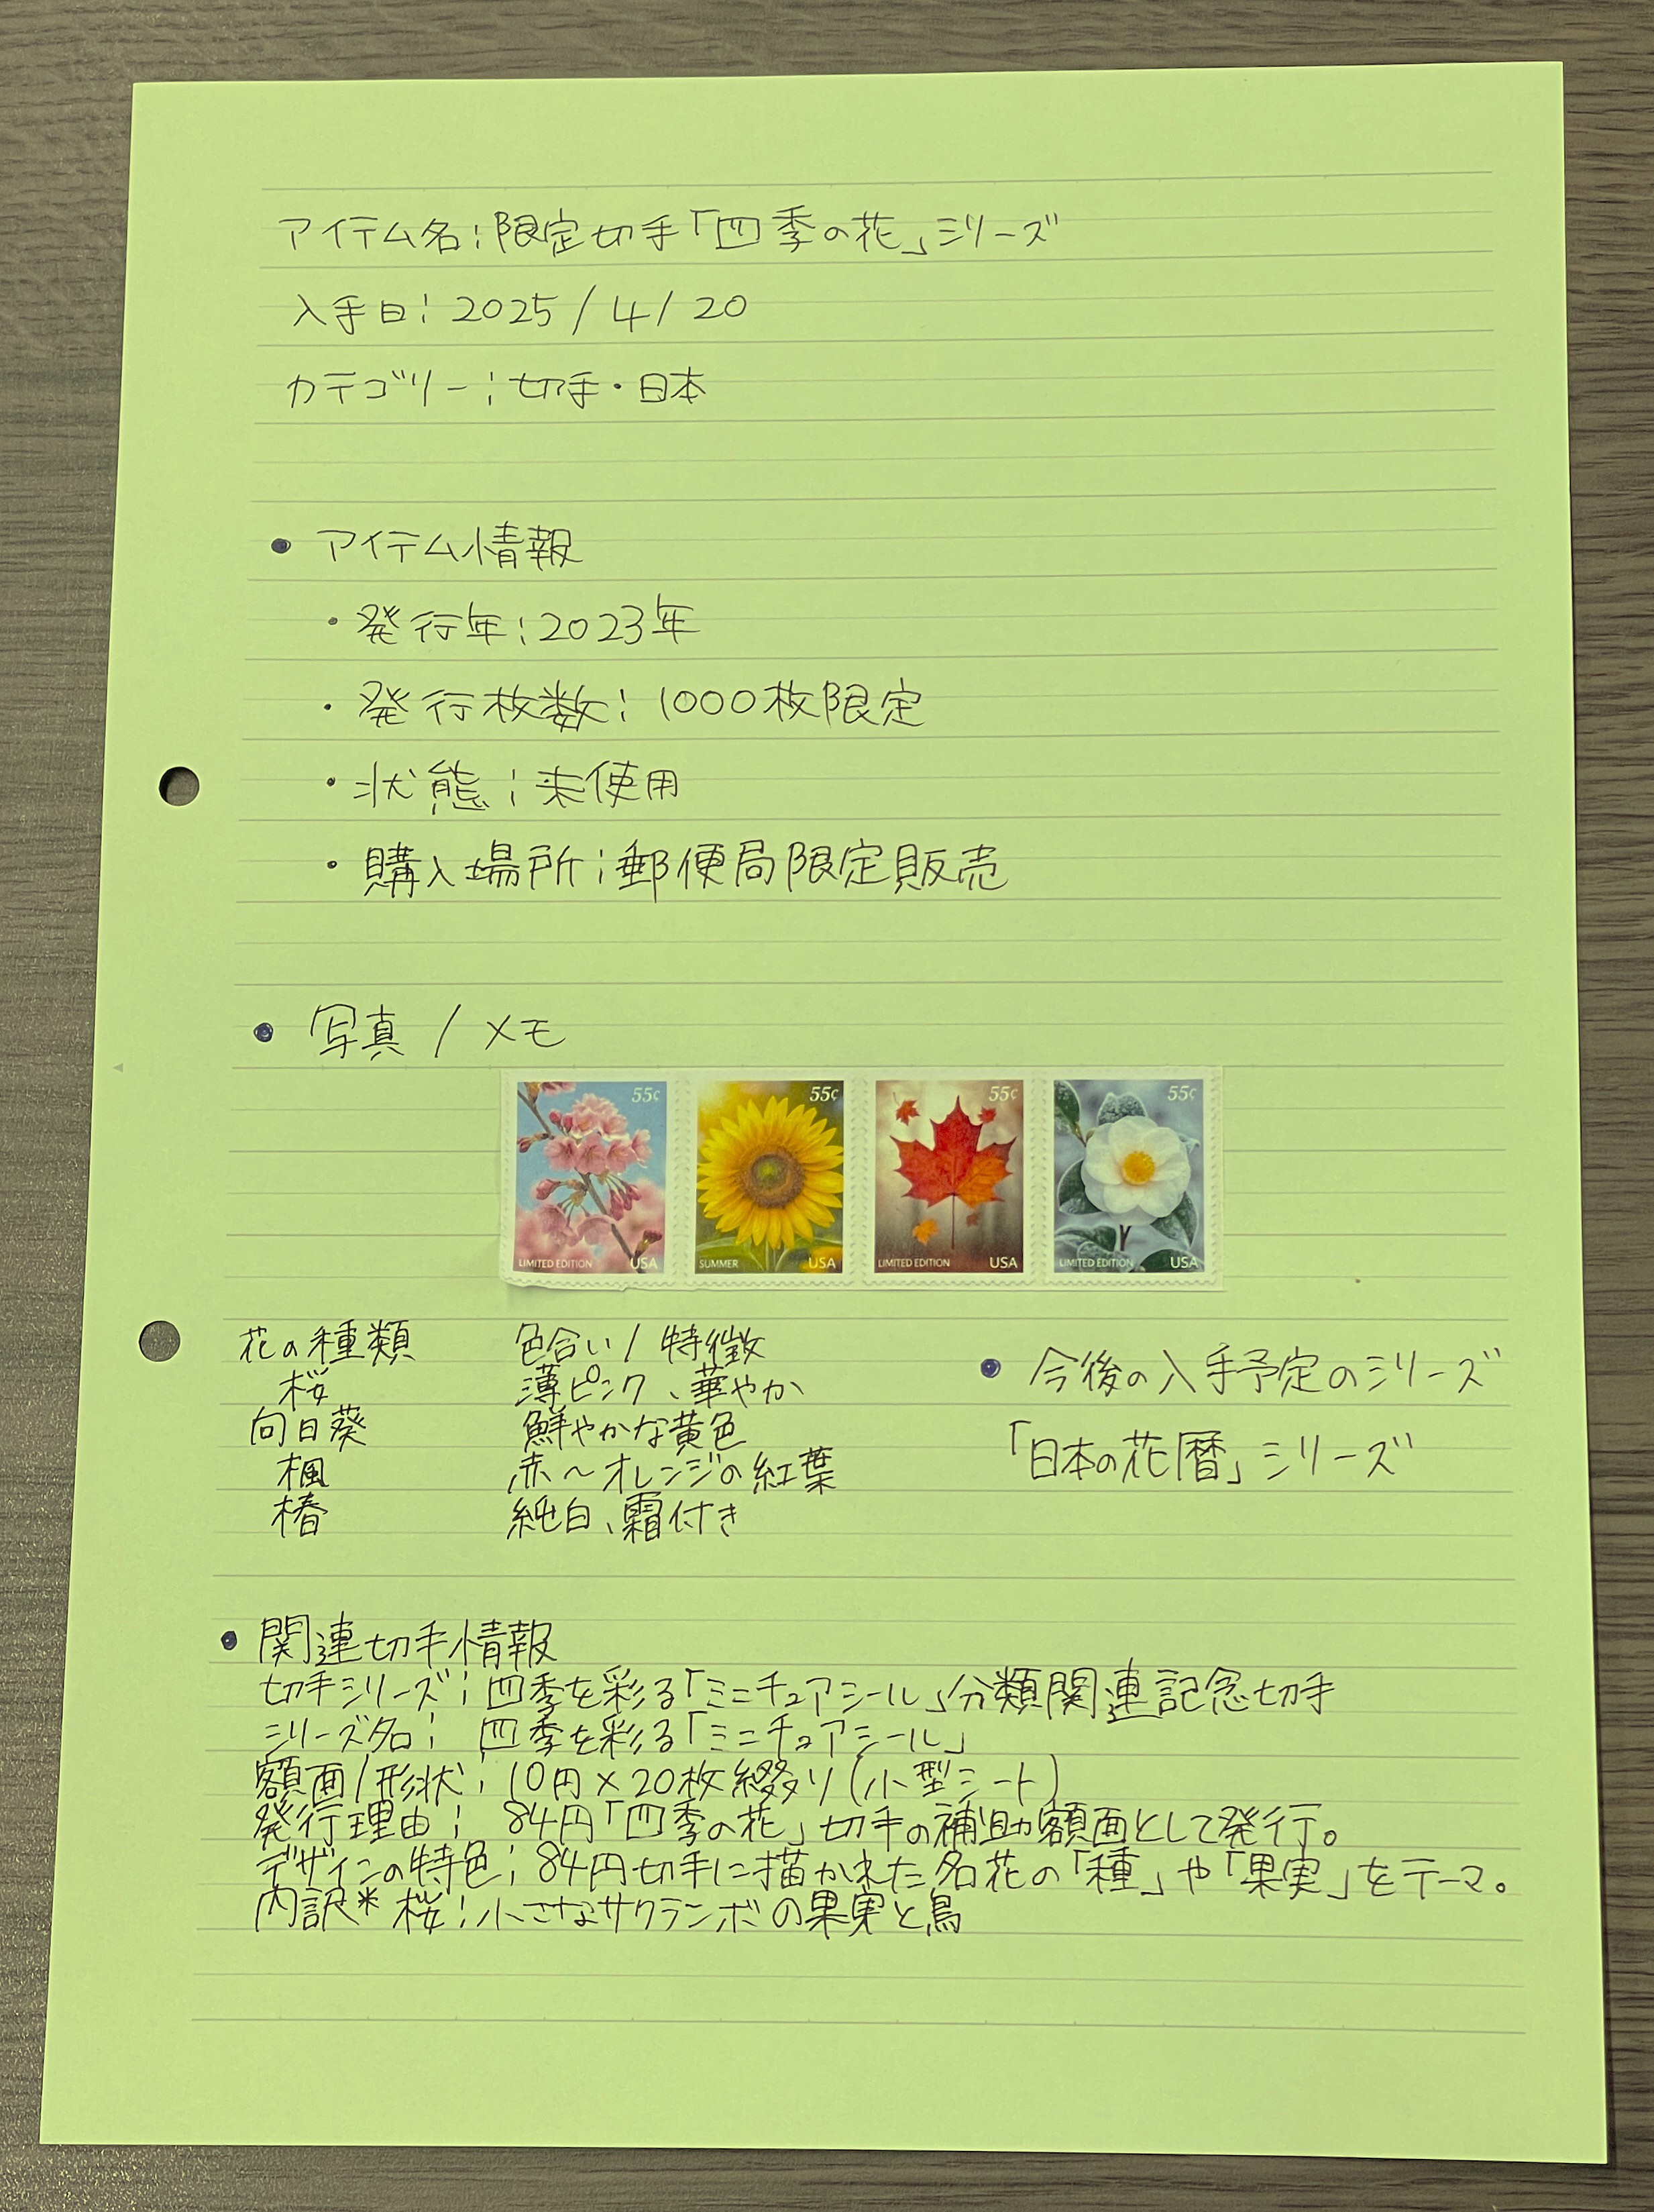 アイテム名:限定切手「四季の花」シリーズ
入手日:2025/4/20
カテゴリー:切手・日本
• アイテム情報
・発行年:2023年
・発行枚数:1000枚限定
・状態:未使用
・購入場所:郵便局限定販売
• 写真/メモ
55¢ 55¢ 55¢ 55¢
LIMITED EDITION USA SUMMER USA LIMITED EDITION USA LIMITED EDITION USA
花の種類 色合い/特徴
桜 薄ピンク、華やか
向日葵 鮮やかな黄色
楓 赤〜オレンジの紅葉
椿 純白、霜付き
• 今後の入手予定のシリーズ
「日本の花暦」シリーズ
• 関連切手情報
切手シリーズ:四季を彩る「ミニチュアシール」分類関連記念切手
シリーズ名:四季を彩る「ミニチュアシール」
額面/形状:10円×20枚綴り(小型シート)
発行理由:84円「四季の花」切手の補助額面として発行。
デザインの特色:84円切手に描かれた名花の「種」や「果実」をテーマ。
内訳* 桜:小さなサクランボの果実と鳥